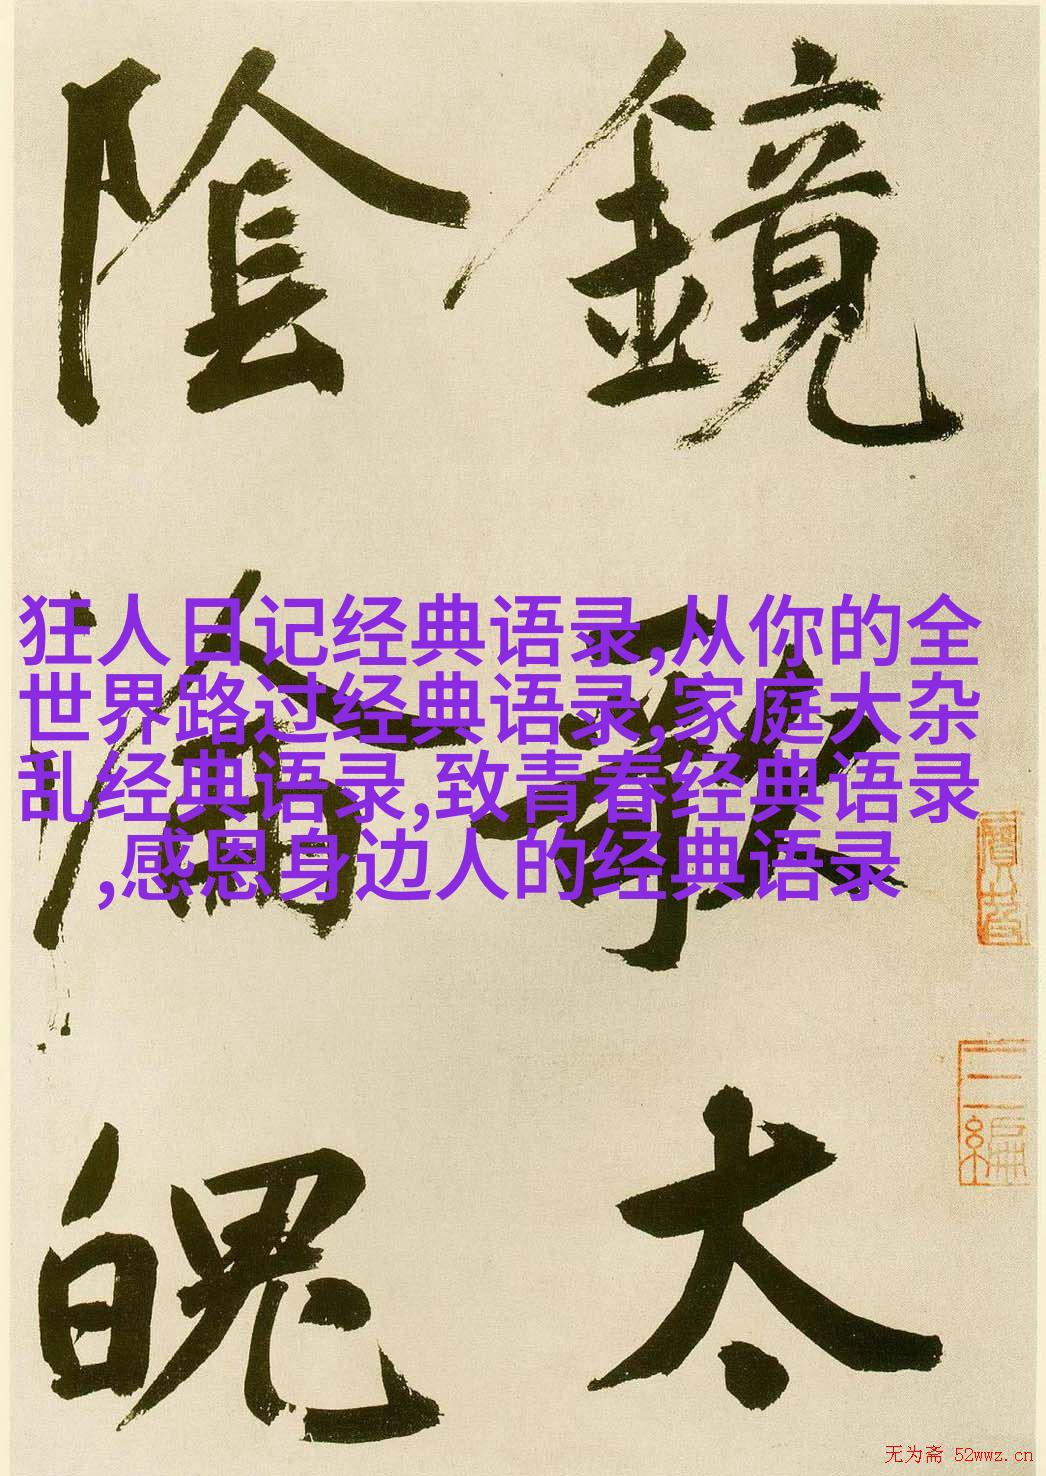 鏡
太
陰
淪
魄
狂人日记经典语录,从你的全
世界路过经典语录,家庭大杂
乱经典语录,致青春经典语录
,感恩身边人的经典语录
无为斋 52wwz.cn